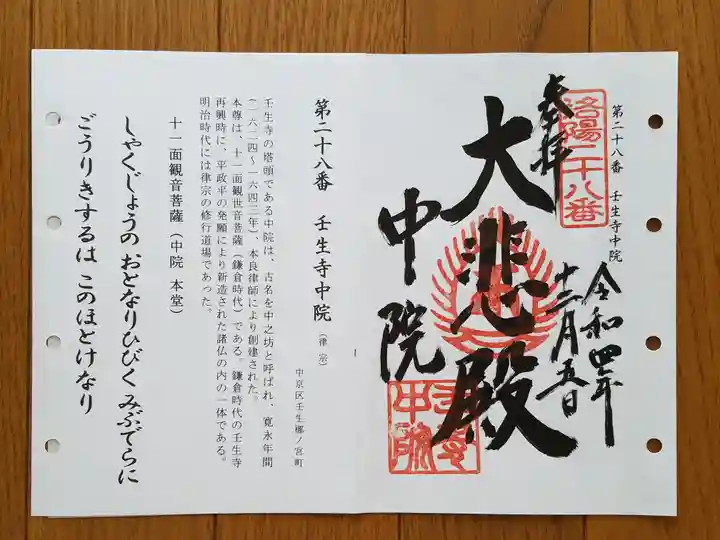 第二十八番 壬生寺中院
洛陽二十八番
奉拝
令和四年
十二月五日
大悲殿
中院
第二十八番 壬生寺中院(律宗)
中京区壬生梛ノ宮町
壬生寺の塔頭である中院は、古名を中之坊と呼ばれ、寛永年間
(一六二四~一六四三年)本良律師により創建された。
本尊は、十一面観世音菩薩(鎌倉時代)である。鎌倉時代の壬生寺
再興時に、平政平の発願により新造された諸仏の内の一体である。
明治時代には律宗の修行道場であった。
十一面観音菩薩(中院 本堂)
しゃくじょうの おとなりひびく みぶでらに
ごうりきするは このほとけなり